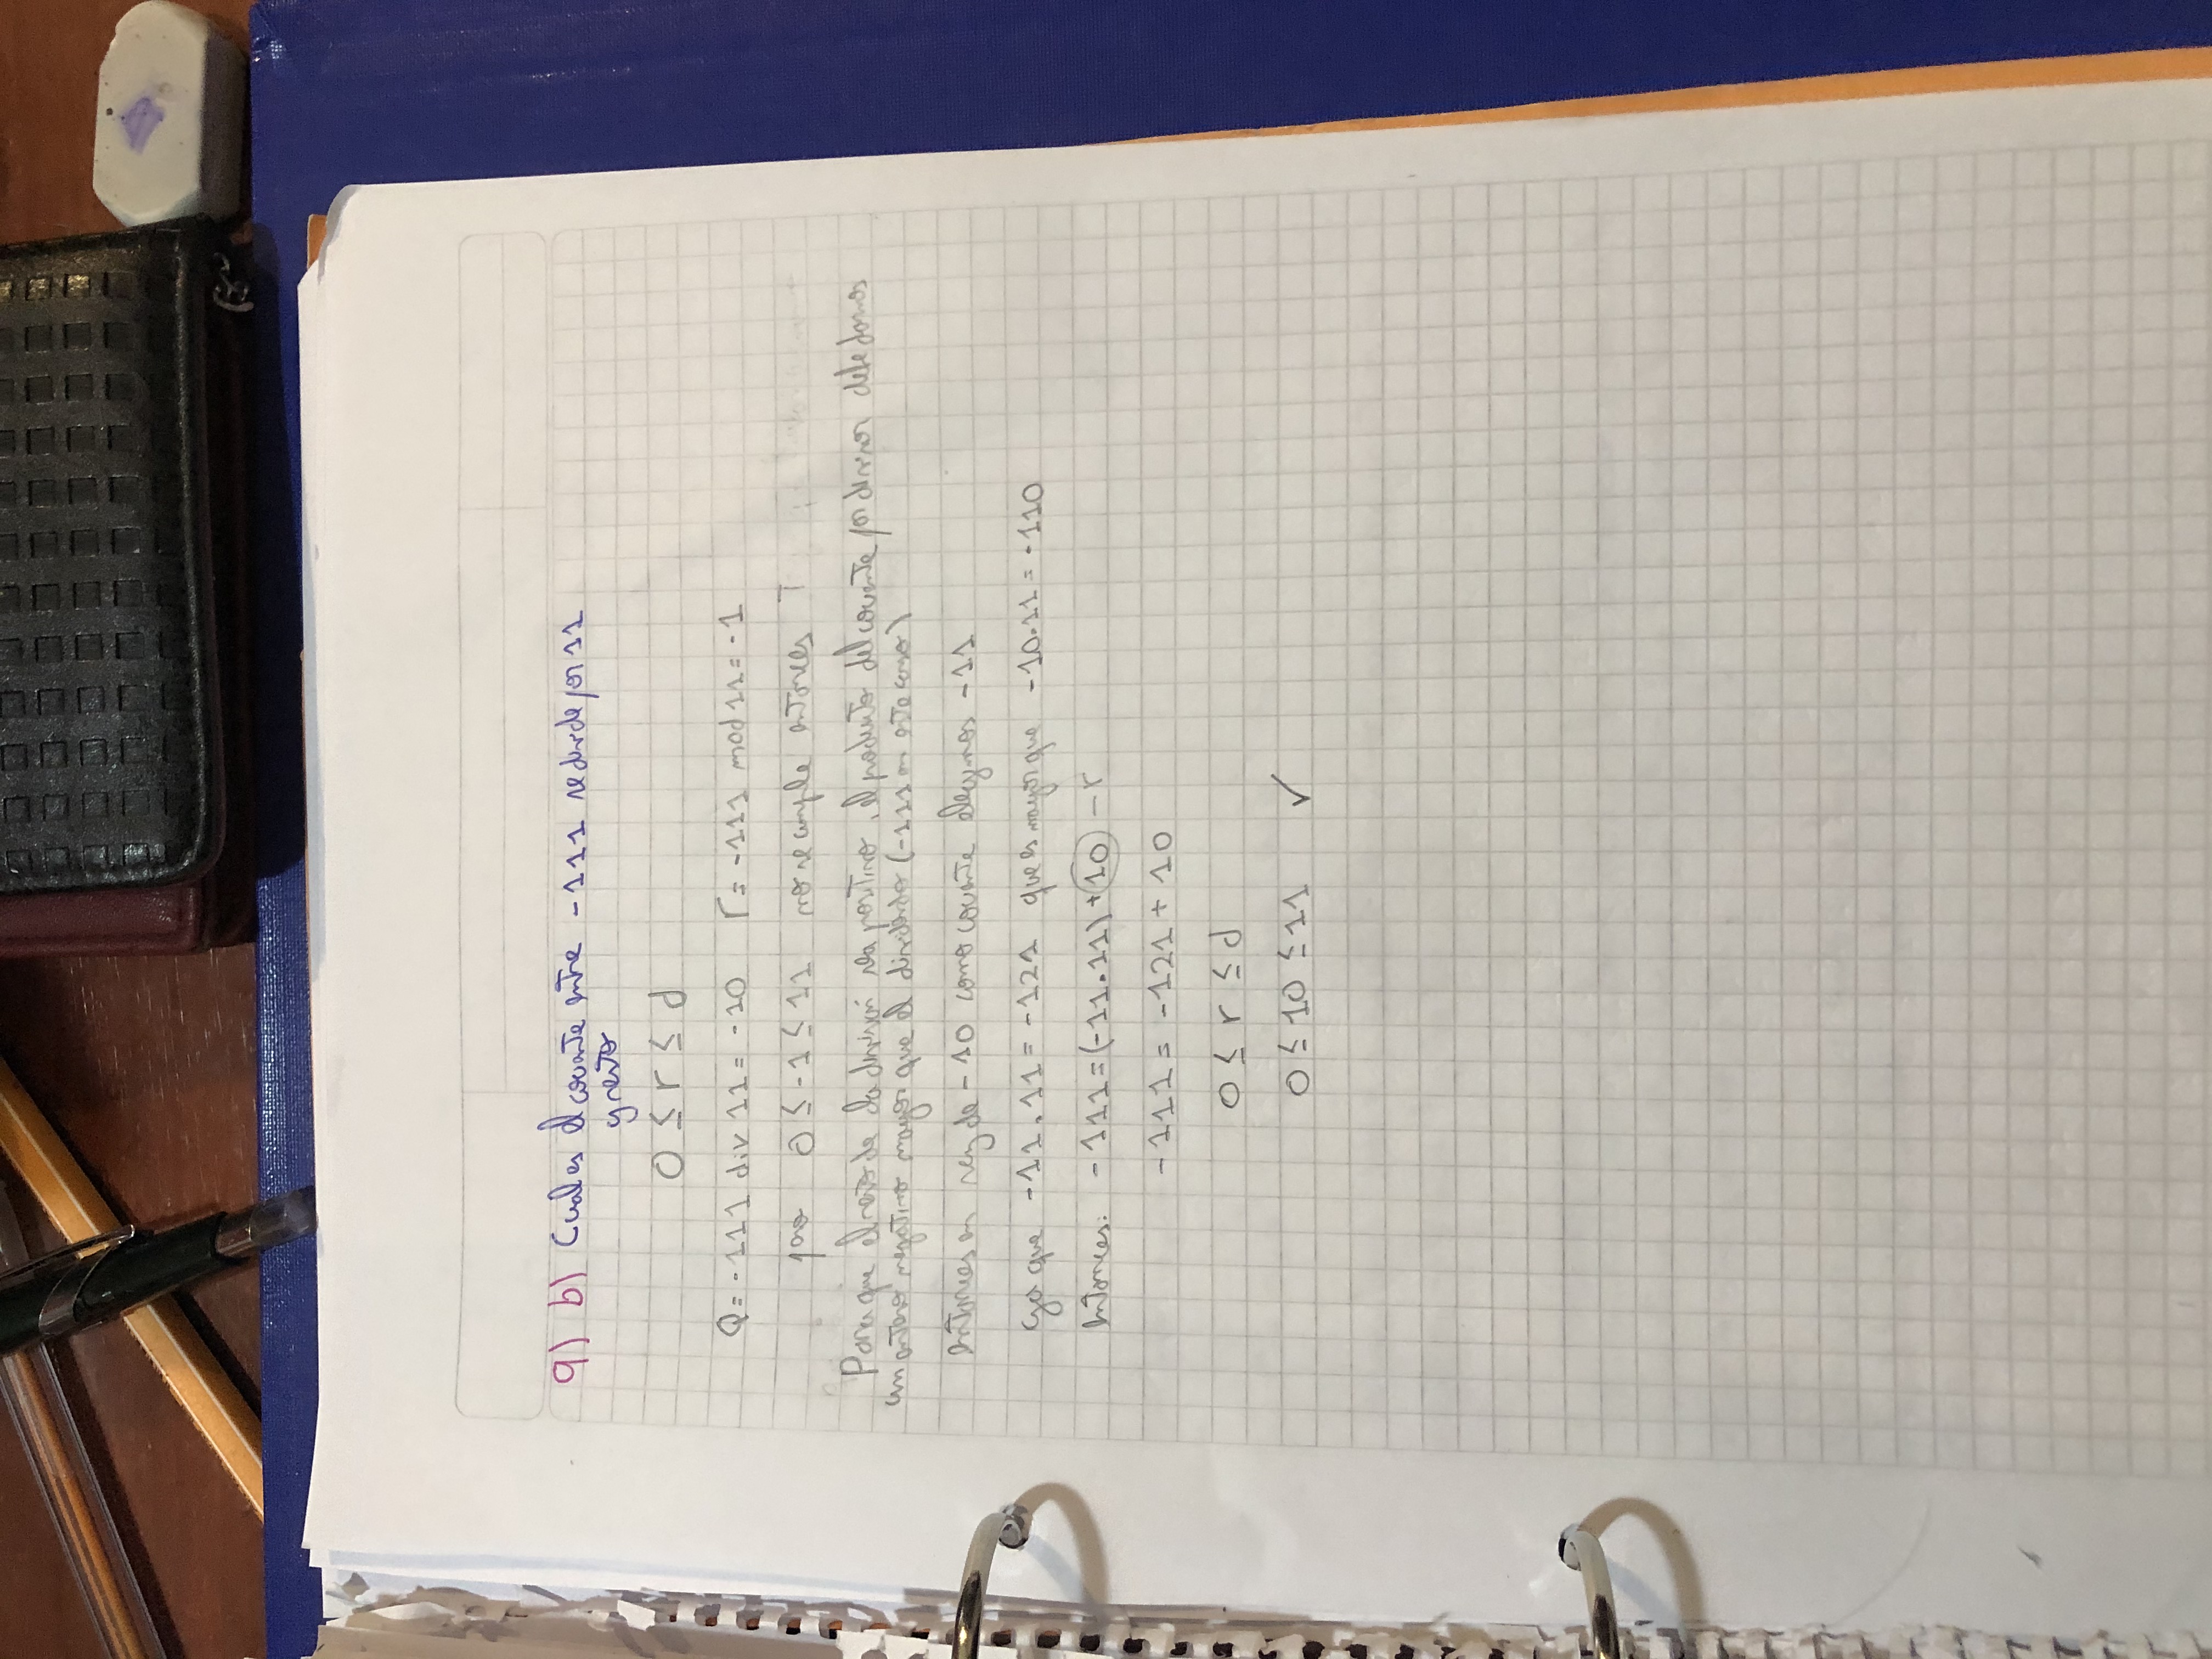 9) b) Cual es el cociente entre -111 se divide por 11
y resto
0 ≤ r ≤ d
Q = -111 div 11 = -10 r = -111 mod 11 = -1
pero 0 ≤ -1 ≤ 11 no se cumple entonces
Para que el resto de la división sea positivo, el producto del cociente por divisor debe darnos
un entero negativo mayor que el dividendo (-111 en este caso)
Entonces en vez de -10 como cociente elegimos -11
ya que -11 . 11 = -121 que es mayor que -10.11 = -110
Entonces: -111 = (-11.11) + 10 - r
-111 = -121 + 10
0 ≤ r ≤ d
0 ≤ 10 ≤ 11 ✓